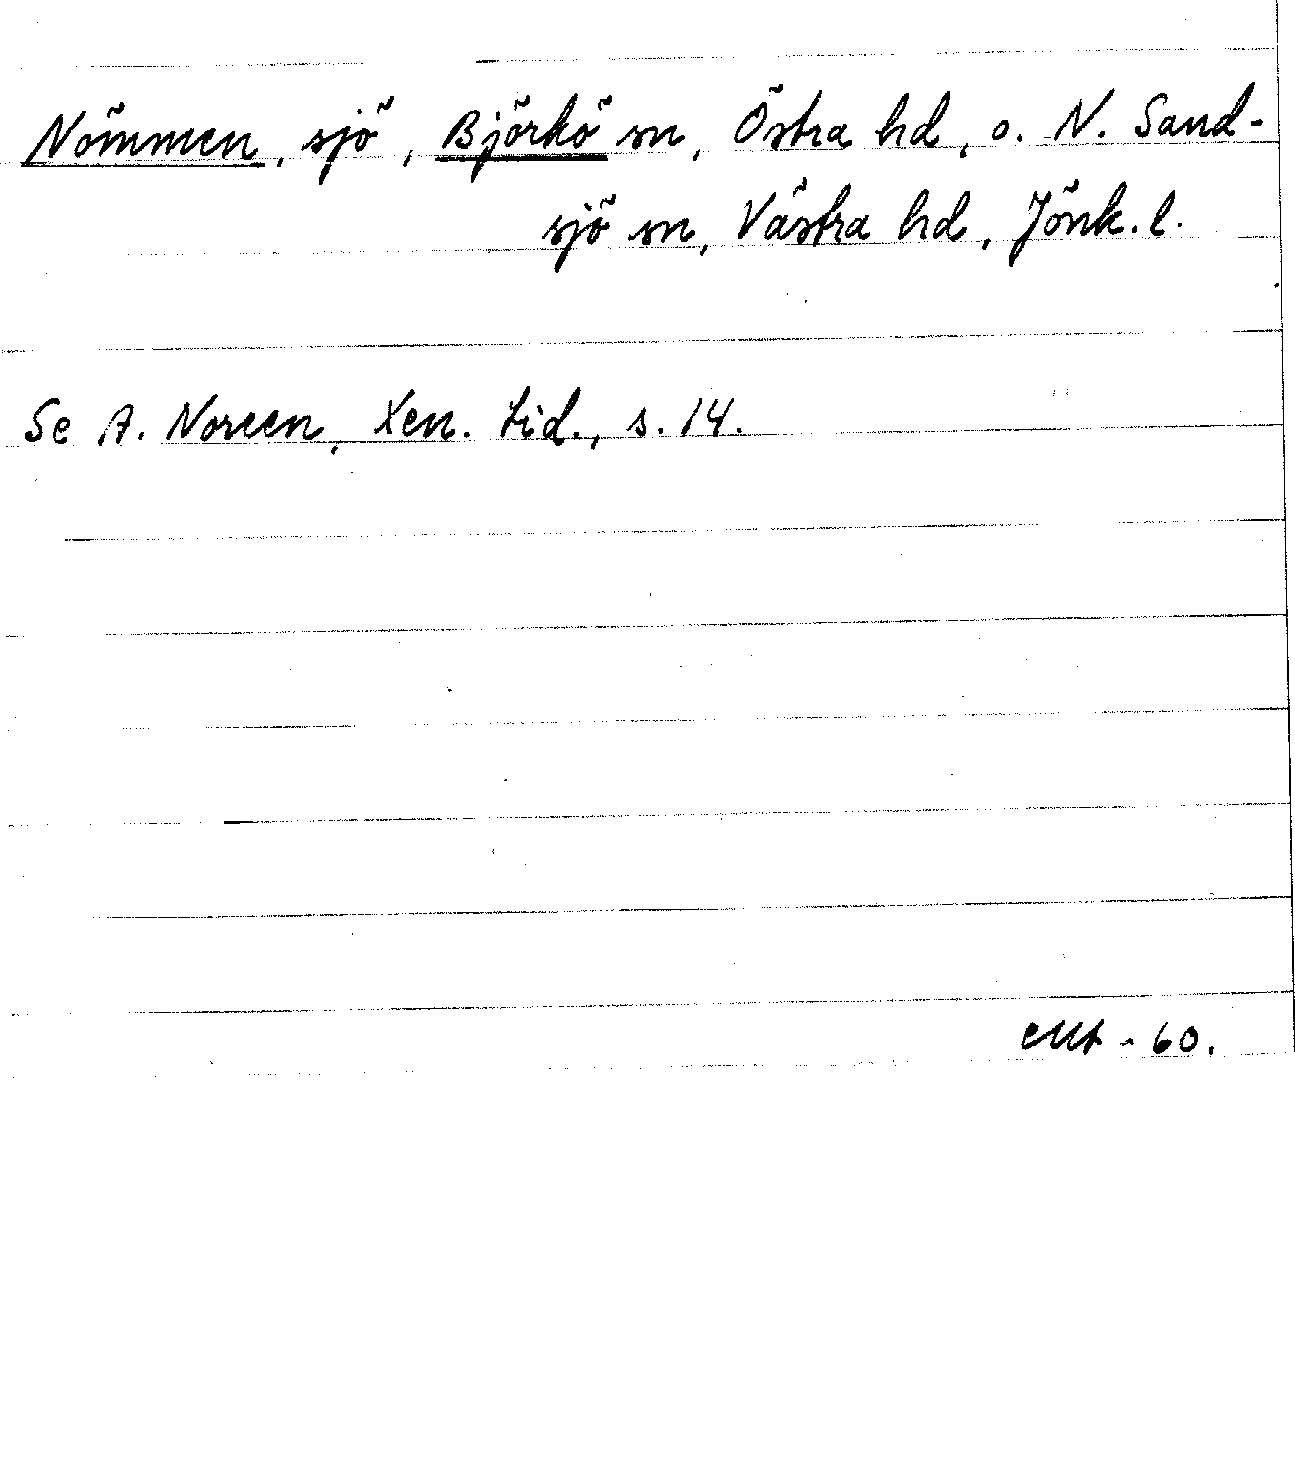 Nömmen, sjö, Björkö sn, Östra hd, o. N. Sand-
sjö sn, Västra hd, Jönk. l.
Se A. Noreen, Xen. Lid., s. 14.
-60.